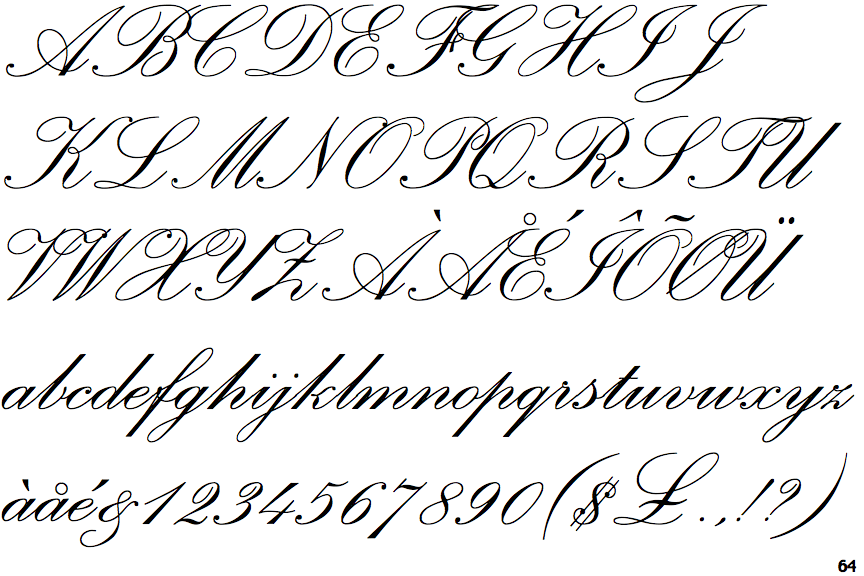 ABCDEFGHIJ
KLMNOPQRSTU
VWXYZÀÅÉÎÕØÜ
abcdefghijklmnopqrstuvwxyz
àåé&1234567890($£.,!?)
64